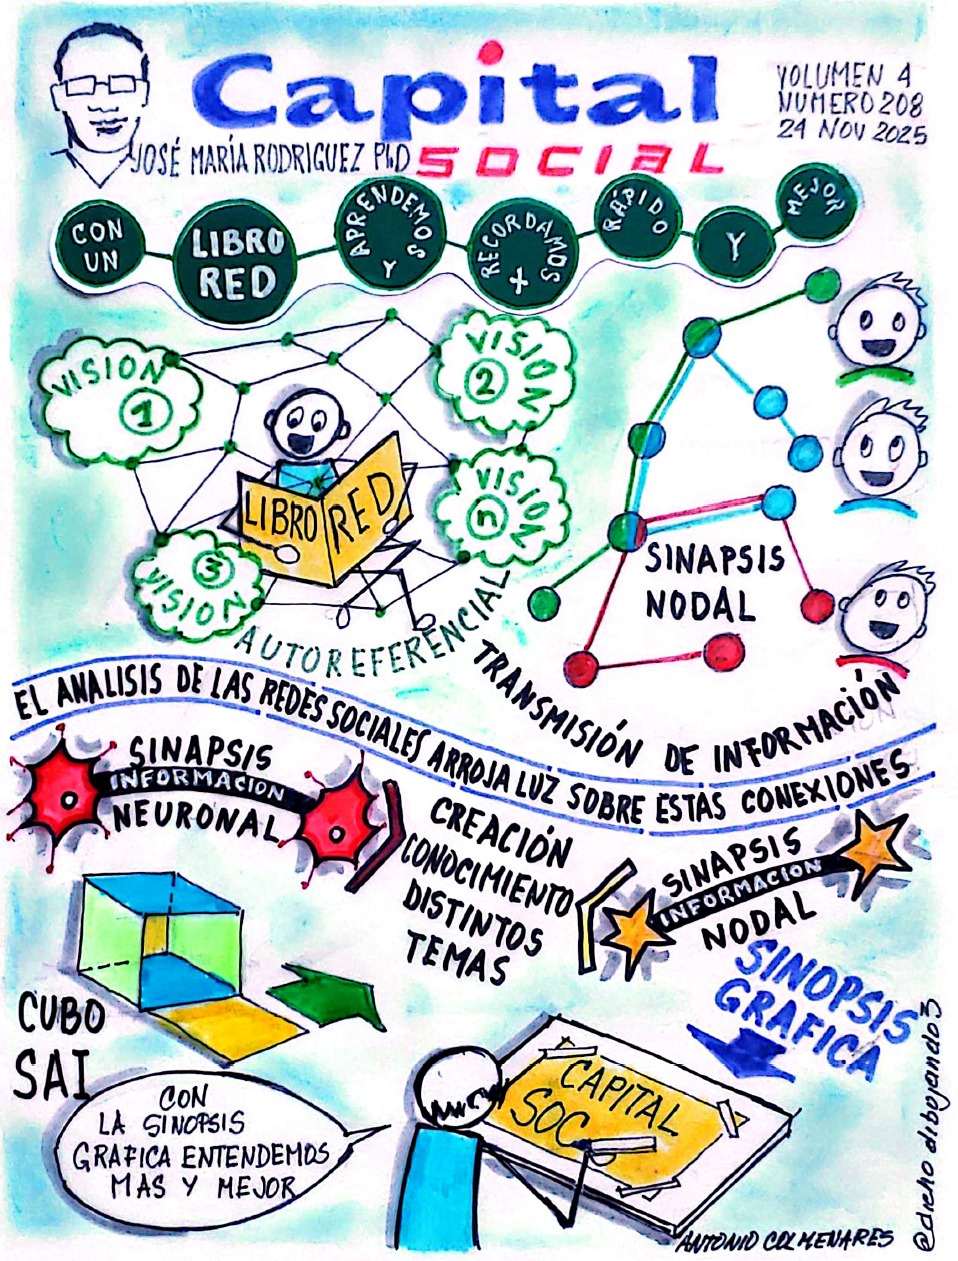 Capital
SOCIAL
JOSÉ MARÍA RODRIGUEZ PhD
VOLUMEN 4
NUMERO 208
24 NOV 2025
CON
UN
LIBRO
RED
APRENDEMOS
Y
RECORDAMOS
+
RÁPIDO
Y
MEJOR
VISION
1
VISION
2
VISION
3
VISION
n
LIBRO RED
AUTOREFERENCIAL
SINAPSIS
NODAL
TRANSMISIÓN DE INFORMACIÓN
EL ANALISIS DE LAS REDES SOCIALES ARROJA LUZ SOBRE ESTAS CONEXIONES
SINAPSIS
INFORMACION
NEURONAL
CREACIÓN
CONOCIMIENTO
DISTINTOS
TEMAS
SINAPSIS
INFORMACION
NODAL
SINOPSIS
GRAFICA
CUBO
SAI
CON
LA SINOPSIS
GRAFICA ENTENDEMOS
MAS Y MEJOR
CAPITAL
SOC
ANTONIO COLMENARES
@dicho dibujando3